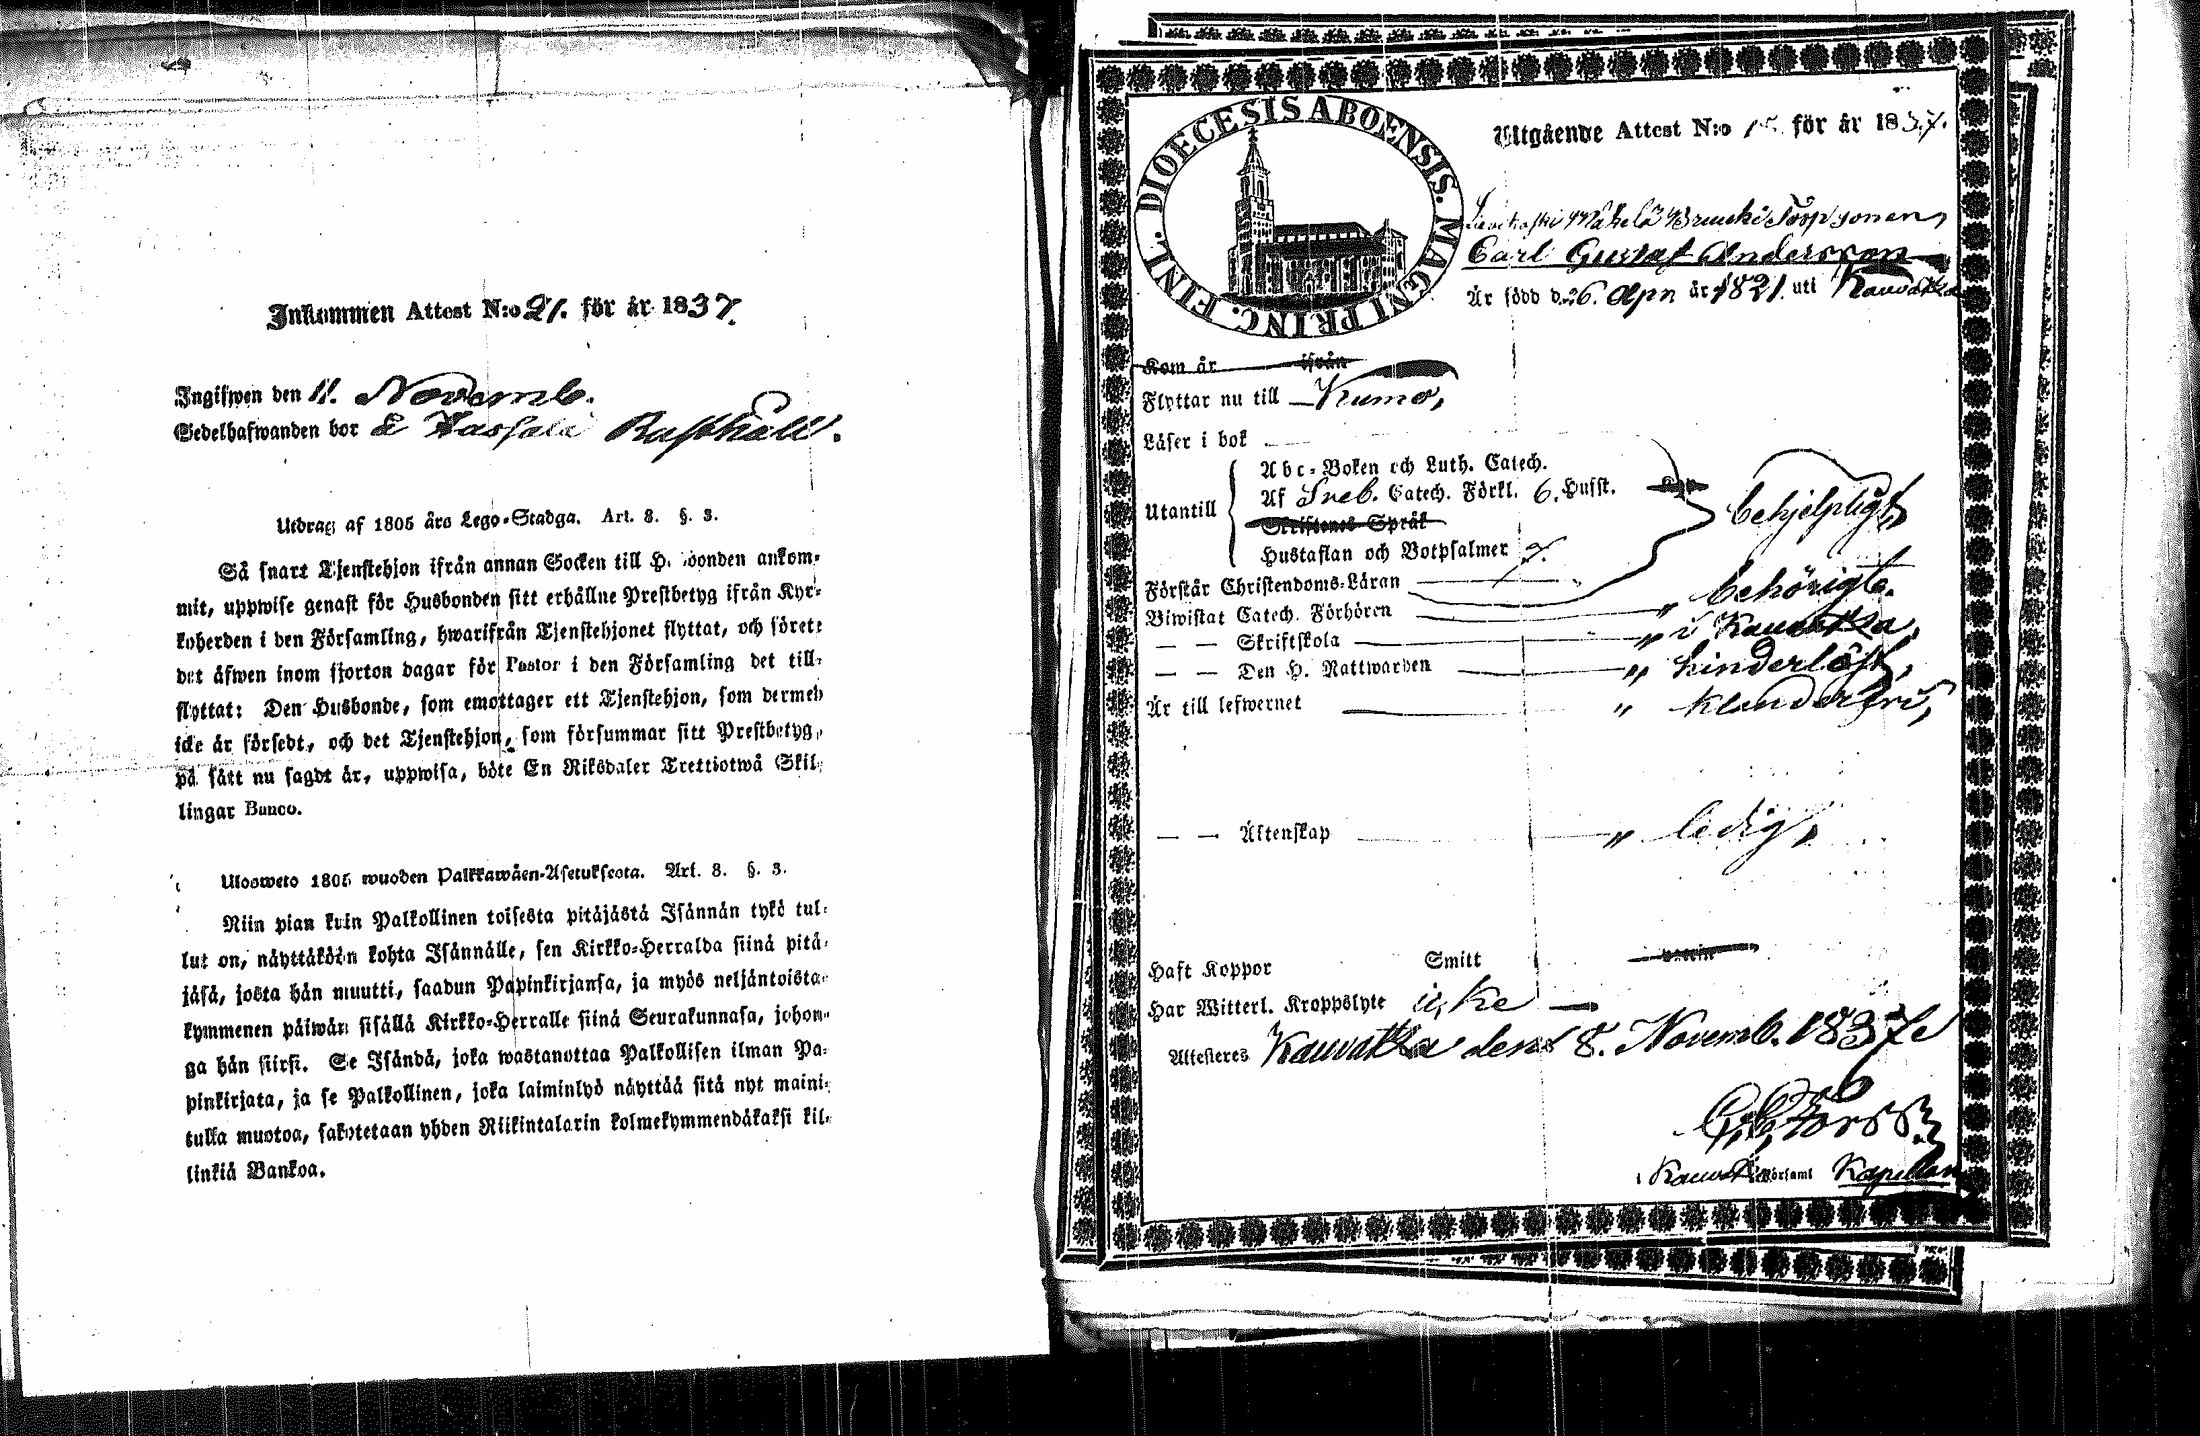 Inkommen Attest N:o 21. för år 1837.
Ingifwen den 11. Novemb.
Sedelhafwanden bor
Utdrag af 1805 års Lego-Stadga. Art. 3. §. 3.
Så snart Tjenstehjon ifrån annan Socken till Husbonden ankom-
mit, uppwise genast för Husbonden sitt erhållne Prestbetyg ifrån Kyr-
koherden i den Församling, hwarifrån Tjenstehjonet flyttat, och förete
det äfwen inom fjorton dagar för Pastor i den Församling det till-
flyttat: Den Husbonde, som emottager ett Tjenstehjon, som dermed
icke är försedt, och det Tjenstehjon, som försummar sitt Prestbetyg,
på sätt nu sagdt är, uppwisa, böte En Riksdaler Trettiotwå Skil-
lingar Banco.
Ulosweto 1805 wuoden Palkkawäen-Asetuksesta. Art. 3. §. 3.
Niin pian kuin Palkollinen toisesta pitäjästä Isännän tykö tul-
lut on, näyttäköön kohta Isännälle, sen Kirkko-Herralda siinä pitä-
jäsä, josta hän muutti, saadun Papinkirjansa, ja myös neljäntoista-
kymmenen päiwän sisällä Kirkko-Herralle siinä Seurakunnasa, johon-
ga hän siirsi. Se Isändä, joka wastanottaa Palkollisen ilman Pa-
pinkirjata, ja se Palkollinen, joka laiminlyö näyttää sitä nyt maini-
tulla muotoa, sakotetaan yhden Riikintalarin kolmekymmendäkaksi kil-
linkiä Bankoa.
DIOECESIS ABOENSIS. MAGNI PRINC. FINL.
Utgående Attest N:o för år 1837.
Torpsonen,
Carl Gustaf Andersson
Är född d. 26. Apr. år 1821. uti Kauvatsa
Kom år ifrån
Flyttar nu till Kumo,
Läser i bok
Utantill
Abc-Boken och Luth. Catech.
Af Sveb. Catech. Förkl. 6. Hufst.
Skriftenes Språk
Hustaflan och Botpsalmer
behjelpligt,
Förstår Christendoms-Läran
Biwistat Catech. Förhören " behörigt.
— — Skriftskola " i Kauvatsa,
— — Den H. Nattwarden " hinderlöst,
Är till lefwernet " klanderfri,
— — Äktenskap " ledig,
Haft Koppor Smitt
Har Witterl. Kroppslyte icke —
Attesteres Kauvatsa den 8. Novemb. 1837
i Kauvatsa Församl Kapellan